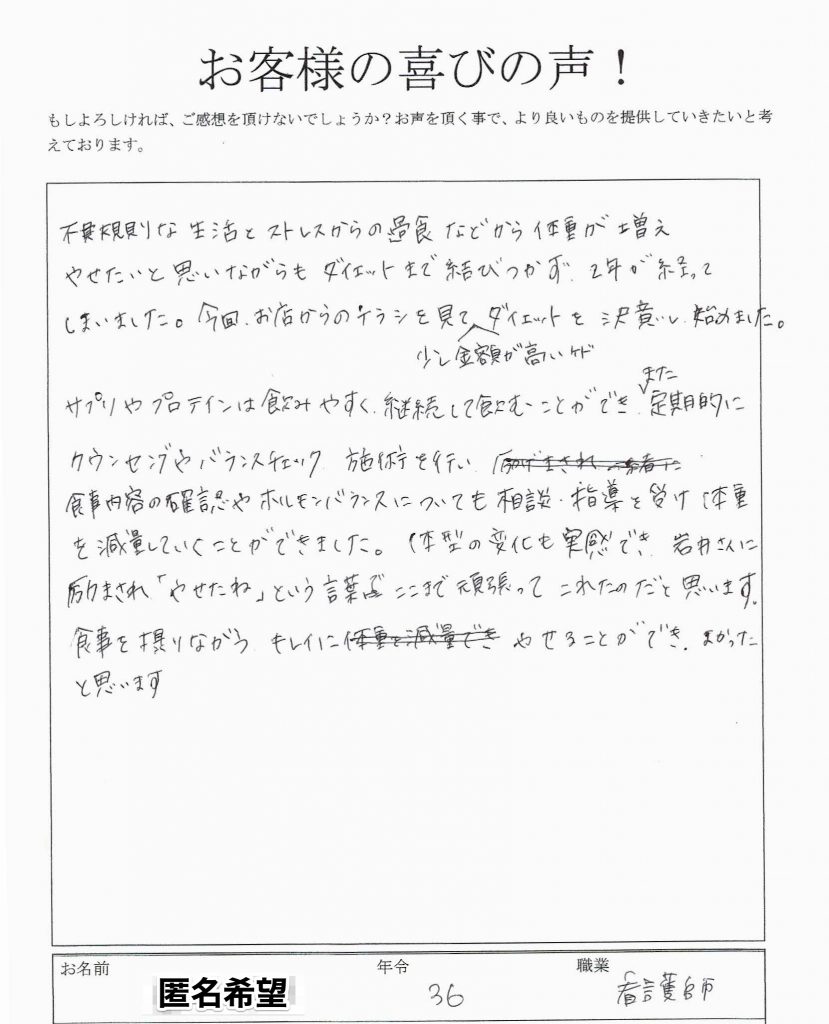 お客様の喜びの声！
もしよろしければ、ご感想を頂けないでしょうか？お声を頂く事で、より良いものを提供していきたいと考
えております。
不規則な生活とストレスからの過食などから体重が増え
やせたいと思いながらもダイエットまで結びつかず、2年が経って
しまいました。今回、お店からのチラシを見て、ダイエットを決意し、始めました。
少し金額が高いケド
また
サプリやプロテインは飲みやすく、継続して飲むことができ、定期的に
カウンセングやバランスチェック、施術を行い、
食事内容の確認やホルモンバランスについても相談・指導を受け体重
を減量していくことができました。体型の変化も実感でき、岩井さんに
励まされ「やせたね」という言葉でここまで頑張ってこれたのだと思います。
食事を摂りながら、キレイに体重を減量でき やせることができ、よかった
と思います
お名前
年令
職業
匿名希望
36
看護師